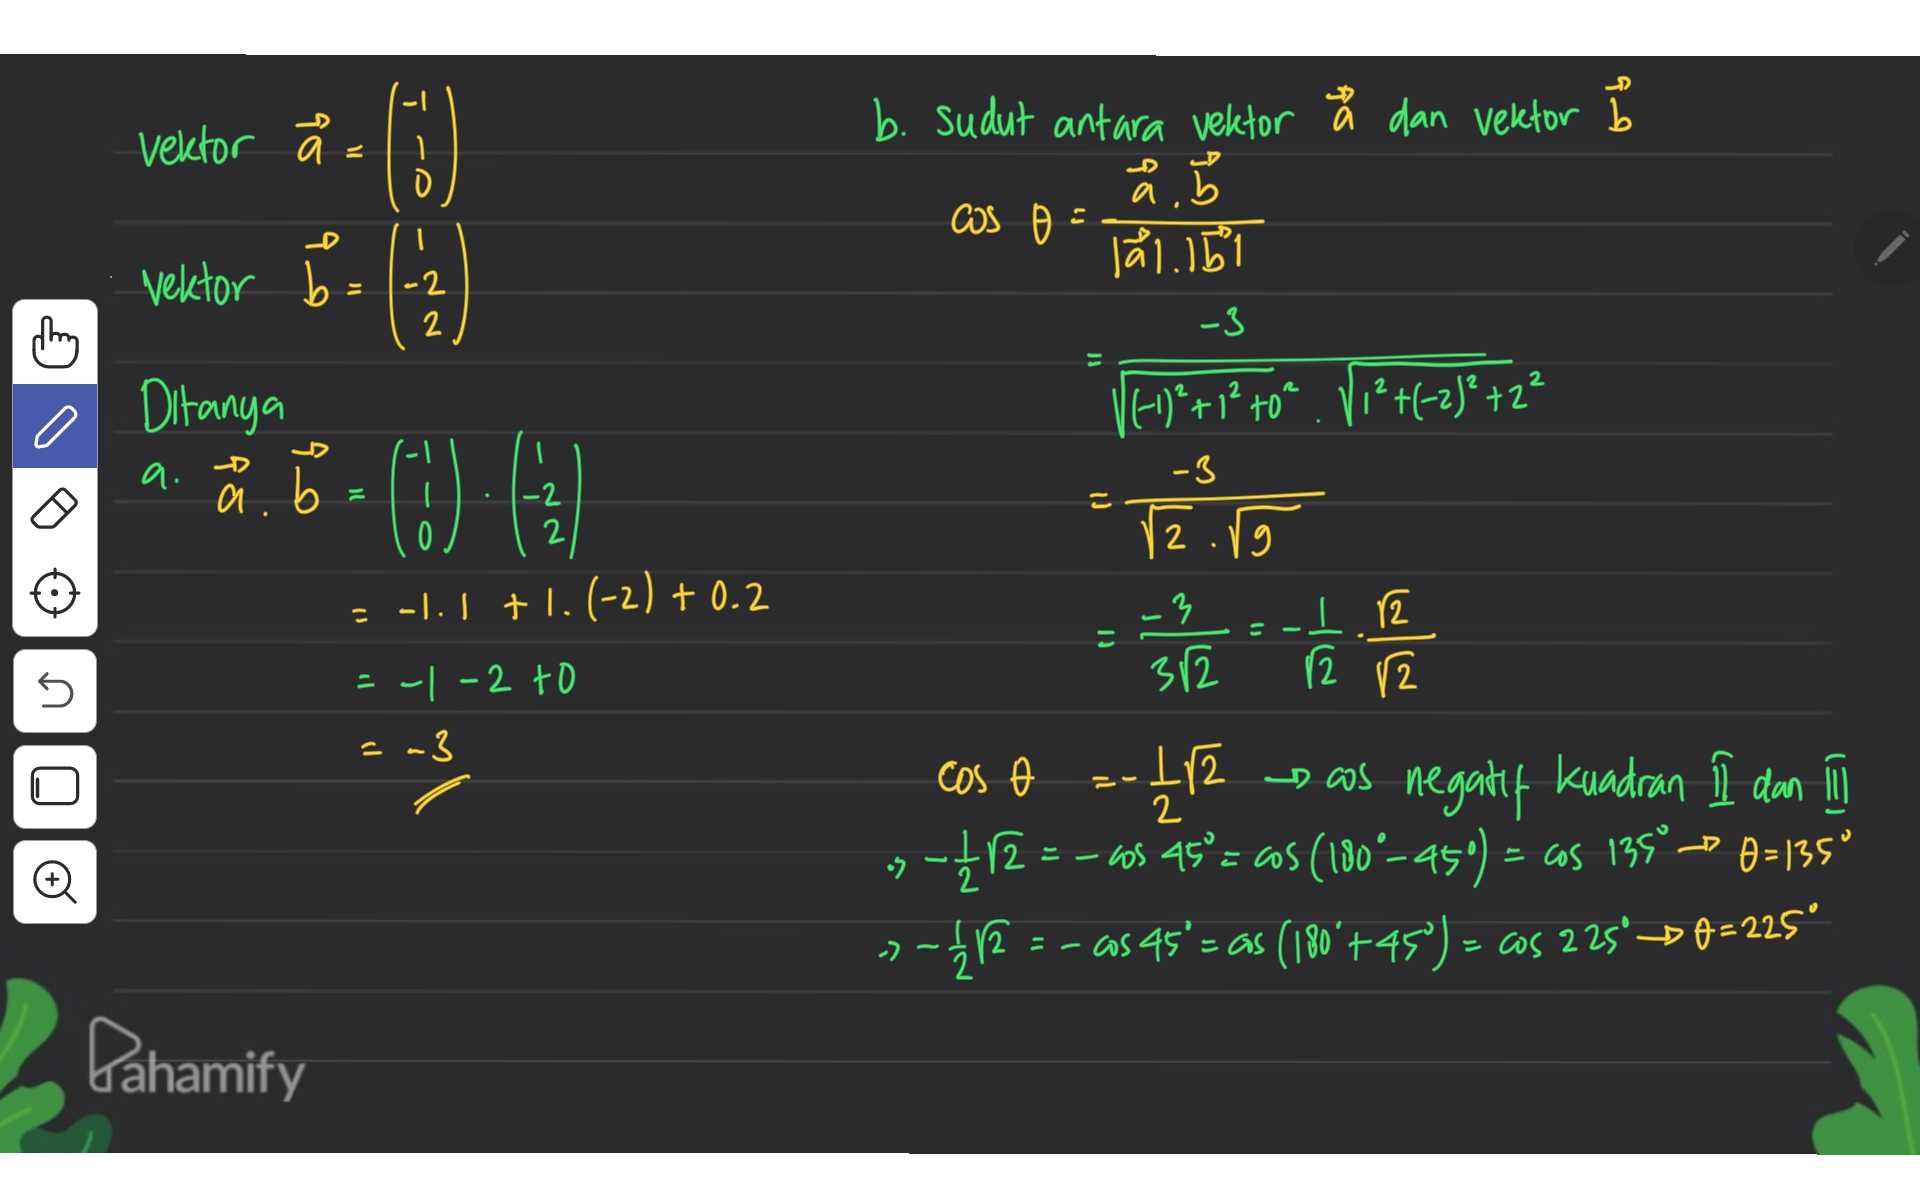 vektor a⃗ = (-1 1 0)
vektor b⃗ = (1 -2 2)
Ditanya
a. a⃗ . b⃗ = (-1 1 0) . (1 -2 2)
= -1.1 + 1.(-2) + 0.2
= -1 -2 +0
= -3
b. sudut antara vektor a⃗ dan vektor b⃗
cos θ = a⃗ . b⃗ / |a⃗|.|b⃗|
= -3 / √(-1)²+1²+0² . √1²+(-2)²+2²
= -3 / √2 . √9
= -3 / 3√2 = - 1/√2 . √2/√2
cos θ = - 1/2 √2 → cos negatif kuadran II dan III
-> - 1/2 √2 = - cos 45° = cos (180°-45°) = cos 135° → θ = 135°
-> - 1/2 √2 = - cos 45° = cos (180°+45°) = cos 225° → θ = 225°
Pahamify